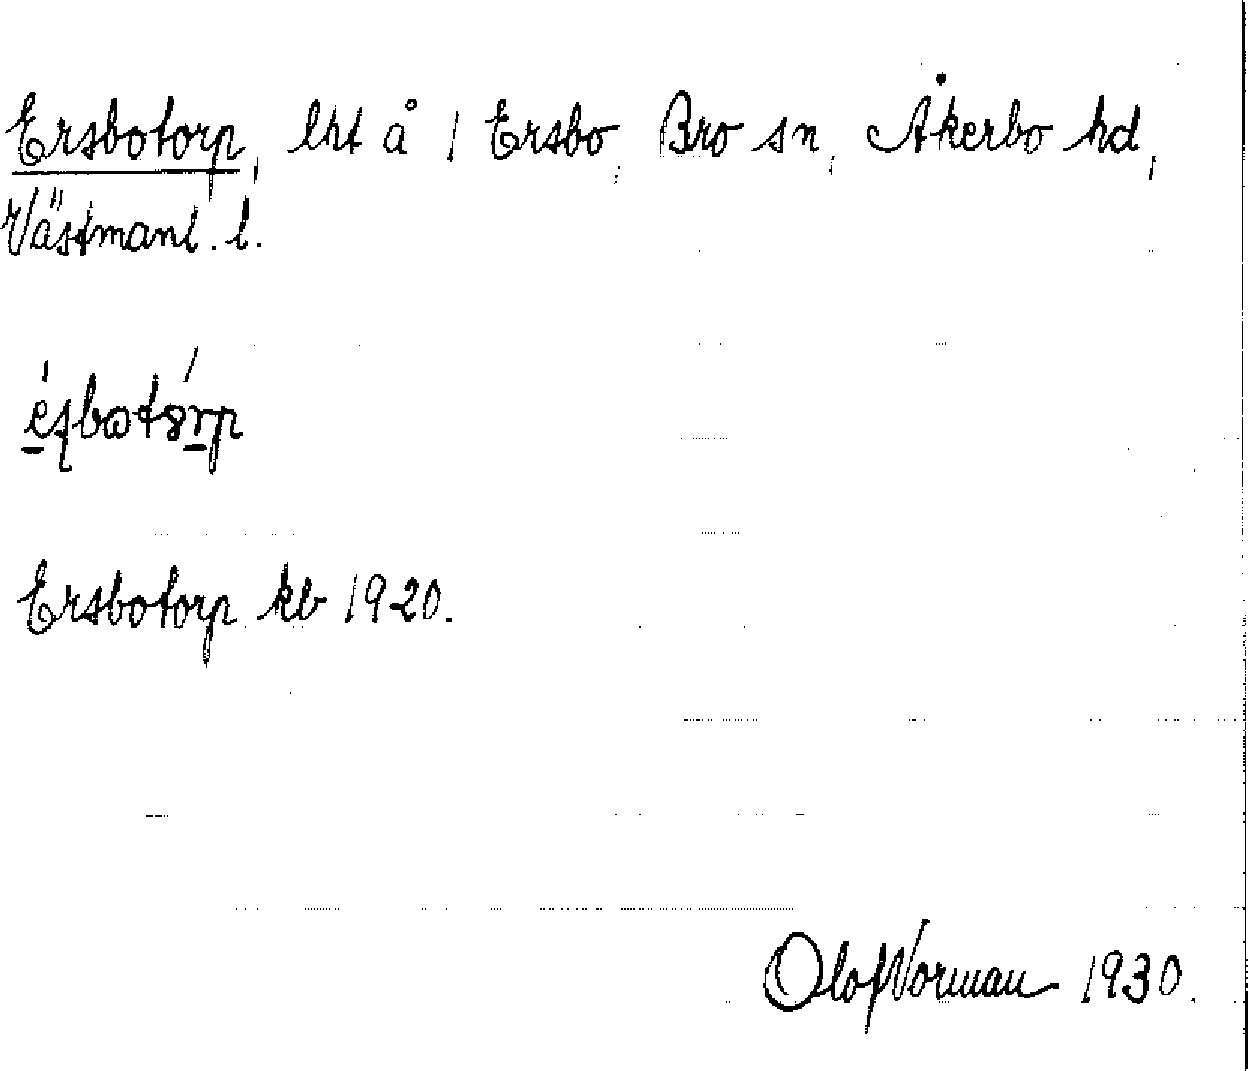 Ersbotorp, lht å 1 Ersbo, Bro sn, Åkerbo hd,
Västmanl. l.
Ersbotorp kb 1920.
Olof Norman 1930.